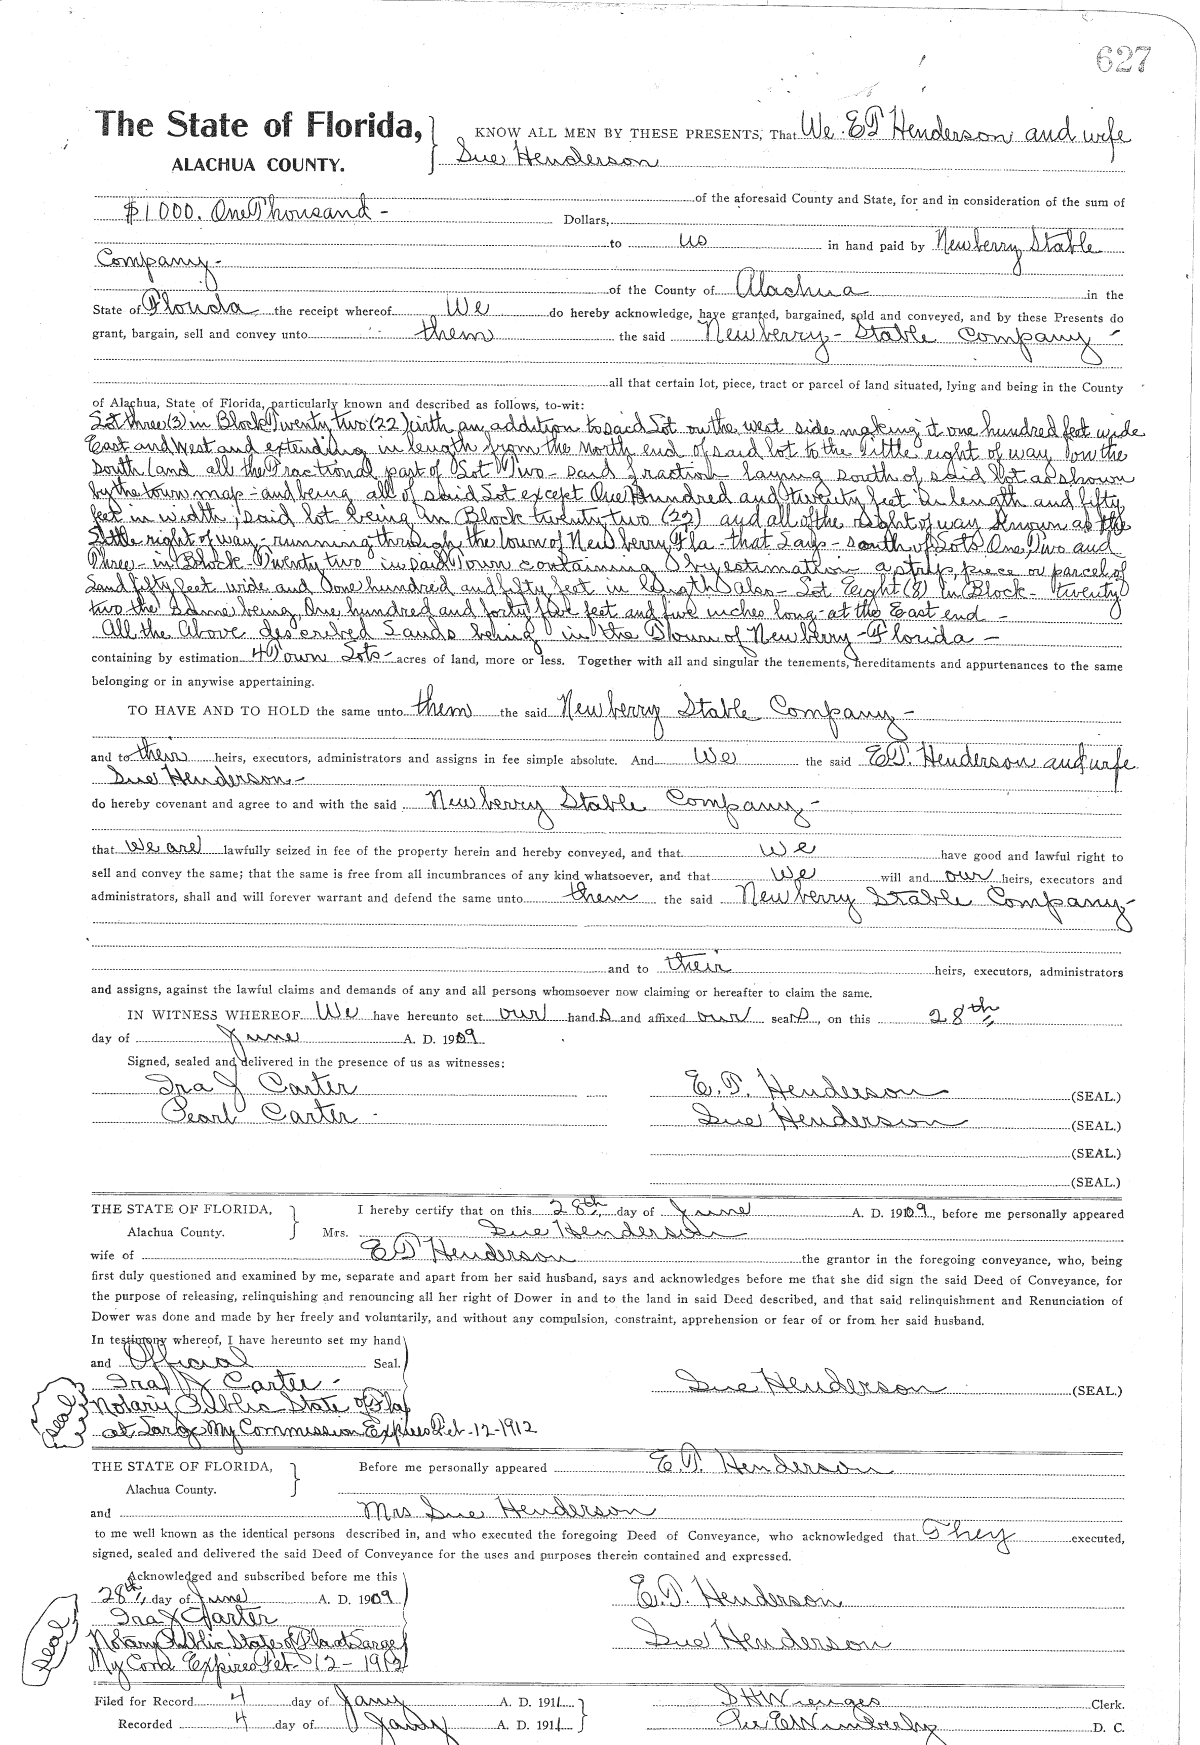 627
The State of Florida, KNOW ALL MEN BY THESE PRESENTS, That We E T Henderson and wife
ALACHUA COUNTY. Sue Henderson
of the aforesaid County and State, for and in consideration of the sum of
$1000. One Thousand - Dollars,
to us in hand paid by Newberry Stable
Company -
of the County of Alachua in the
State of Florida the receipt whereof We do hereby acknowledge, have granted, bargained, sold and conveyed, and by these Presents do
grant, bargain, sell and convey unto them the said Newberry - Stable Company -
all that certain lot, piece, tract or parcel of land situated, lying and being in the County
of Alachua, State of Florida, particularly known and described as follows, to-wit:
Lot three (3) in Block Twenty two (22) with an addition to said Lot on the west side making it one hundred feet wide
East and West and extending in length from the North end of said lot to the Little right of way on the
South (and all the Fractional part of Lot Two - said fraction laying south of said lot as shown
by the town map - and being all of said Lot except One Hundred and twenty feet in length and fifty
feet in width, said lot being in Block twenty two (22) and all of the right of way Known as the
Little right of way - running through the town of Newberry Fla - that Lays - south of Lots One, Two and
Three - in Block - Twenty two in said Town containing by estimation a strip, piece or parcel of
Land fifty feet wide and One hundred and fifty feet in length also - Lot Eight (8) In Block - twenty
two the Same being One hundred and forty five feet and five inches long - at the East end -
All the Above described Lands being in the Town of Newberry - Florida -
containing by estimation 4 Town Lots - acres of land, more or less. Together with all and singular the tenements, hereditaments and appurtenances to the same
belonging or in anywise appertaining.
TO HAVE AND TO HOLD the same unto them the said Newberry Stable Company -
and to their heirs, executors, administrators and assigns in fee simple absolute. And We the said E T. Henderson and wife
Sue Henderson -
do hereby covenant and agree to and with the said Newberry Stable Company -
that we are lawfully seized in fee of the property herein and hereby conveyed, and that we have good and lawful right to
sell and convey the same; that the same is free from all incumbrances of any kind whatsoever, and that we will and our heirs, executors and
administrators, shall and will forever warrant and defend the same unto them the said Newberry Stable Company -
and to their heirs, executors, administrators
and assigns, against the lawful claims and demands of any and all persons whomsoever now claiming or hereafter to claim the same.
IN WITNESS WHEREOF We have hereunto set our hands and affixed our seals, on this 28th
day of June A. D. 1909.
Signed, sealed and delivered in the presence of us as witnesses:
Ira J Carter E. T. Henderson (SEAL.)
Pearl Carter - Sue Henderson (SEAL.)
(SEAL.)
(SEAL.)
THE STATE OF FLORIDA, I hereby certify that on this 28th, day of June A. D. 1909., before me personally appeared
Alachua County. Mrs. Sue Henderson
wife of E T Henderson the grantor in the foregoing conveyance, who, being
first duly questioned and examined by me, separate and apart from her said husband, says and acknowledges before me that she did sign the said Deed of Conveyance, for
the purpose of releasing, relinquishing and renouncing all her right of Dower in and to the land in said Deed described, and that said relinquishment and Renunciation of
Dower was done and made by her freely and voluntarily, and without any compulsion, constraint, apprehension or fear of or from her said husband.
In testimony whereof, I have hereunto set my hand
and Official Seal.
Ira J Carter - Sue Henderson (SEAL.)
Seal Notary Public State of Fla
at Large My Commission Expires Feb - 12 - 1912
THE STATE OF FLORIDA, Before me personally appeared E. T. Henderson
Alachua County.
and Mrs Sue Henderson
to me well known as the identical persons described in, and who executed the foregoing Deed of Conveyance, who acknowledged that They executed,
signed, sealed and delivered the said Deed of Conveyance for the uses and purposes therein contained and expressed.
Acknowledged and subscribed before me this
28th, day of June A. D. 1909 E. T. Henderson
Ira J Carter
Seal Notary Public State of Fla at Large Sue Henderson
My Com Expires Feb - 12 - 1912
Filed for Record 4 day of Jany A. D. 1911 S H Wienges Clerk.
Recorded 4 day of Jany A. D. 1911 D. C.